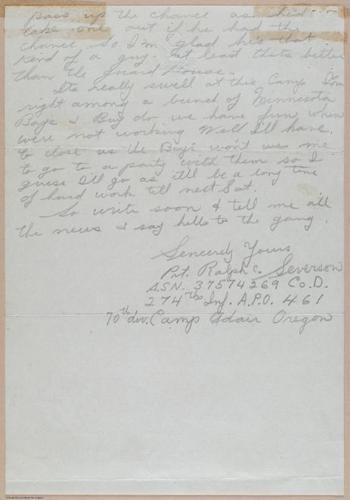 pass up the chance as did
take one out if he had the
chance, So I'm glad he's that
kind of a guy. At least that's better
than the Guard House.
Its really swell at this Camp Im
right among a bunch of Minnesota
Boys & Boy do we have fun when
were not working Well I'll have
to close as the Boys wont me
to go to a party with them so I
guess I'll go as it'll be a long time
of hard work till next Sat.
So write soon & tell me all
the news & say hello to the gang.
Sencerely Yours
Pvt. Ralph C. Severson
A.S.N. 37574269 Co. D.
274th Inf. A.P.O. 461
70th div. Camp Adair Oregon